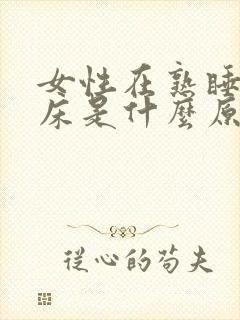 女性在熟睡
床是什麼原
從心的苟夫